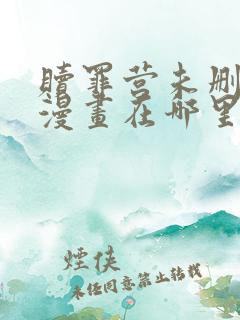 贖罪营未删
漫畫在哪里
煙侠
未经同意禁止转载